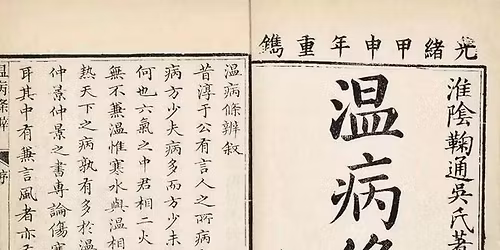 光緒甲申年重鐫
淮陰鞠通吳氏著
温病條
温病條辨敘
昔淳于公有言人之所病
病方少夫病多而方少未
何也六氣之中君相二火
無不兼温惟寒水與温相
熱天下之病孰有多於温
仲景仲景之書專論傷寒
耳其中有兼言風者亦
温病條辨
序